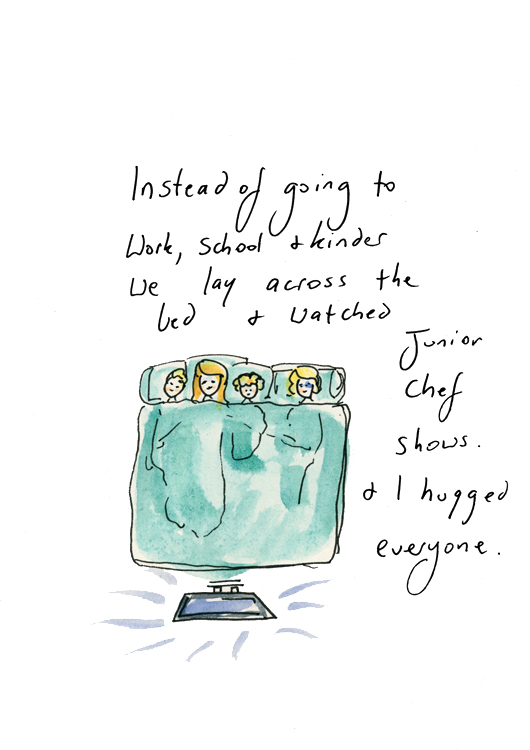 Instead of going to
work, school & kinder
we lay across the
bed & watched
Junior
Chef
shows.
& I hugged
everyone.